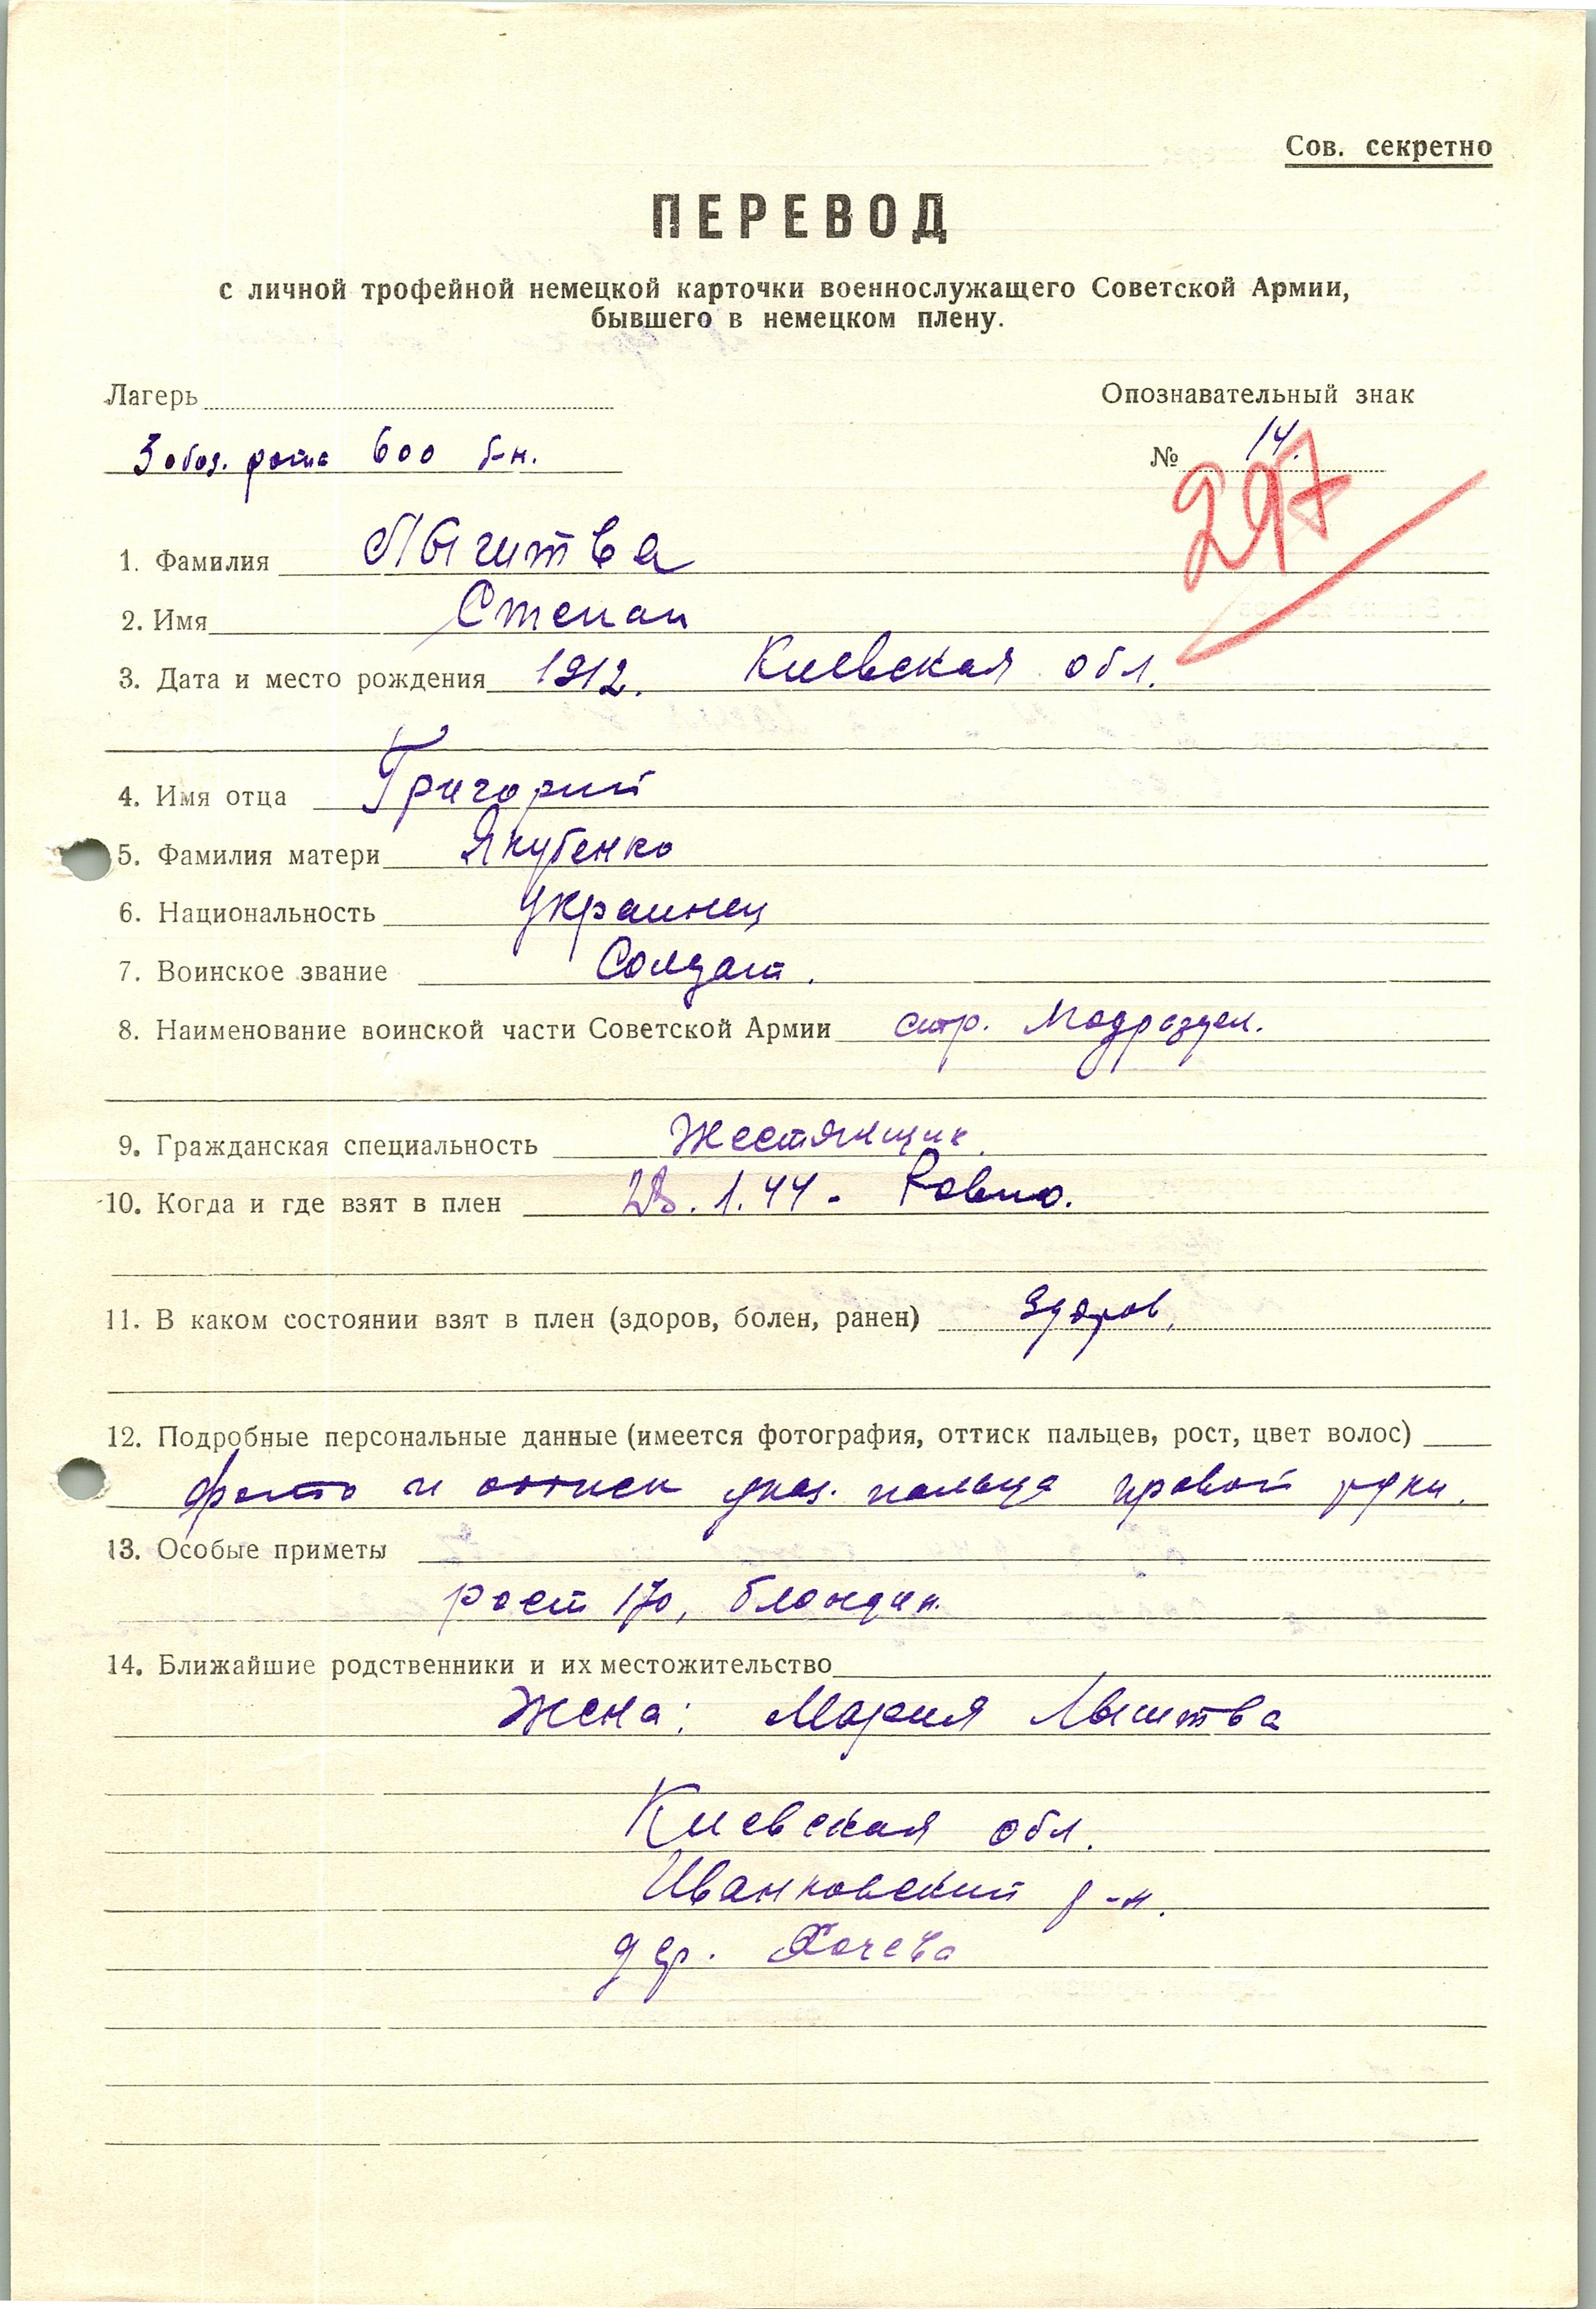 Сов. секретно
ПЕРЕВОД
с личной трофейной немецкой карточки военнослужащего Советской Армии,
бывшего в немецком плену.
Лагерь
Опознавательный знак
3 обоз. рота 600 б-н.
№ 14.
297
1. Фамилия
2. Имя Степан
3. Дата и место рождения 1912. Киевская обл.
4. Имя отца Григорий
5. Фамилия матери Якубенко
6. Национальность Украинец
7. Воинское звание Солдат.
8. Наименование воинской части Советской Армии стр. Подраздел.
9. Гражданская специальность Жестянщик.
10. Когда и где взят в плен .1.44 - Ровно.
11. В каком состоянии взят в плен (здоров, болен, ранен) Здоров,
12. Подробные персональные данные (имеется фотография, оттиск пальцев, рост, цвет волос)
фото и оттиск указ. пальца правой руки.
13. Особые приметы
рост 170, блондин.
14. Ближайшие родственники и их местожительство
Жена: Мария
Киевская обл.
Иванковский р-н.
дер. Хочева